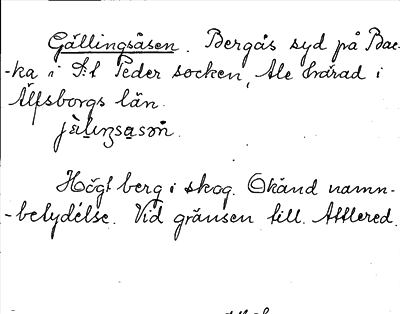 Gällingsåsen. Bergås syd på Bac-
-ka i S:t Peder socken, Ale härad i
Älfsborgs län.
Högt berg i skog. Okänd namn-
-betydelse. Vid gränsen till Attlered.